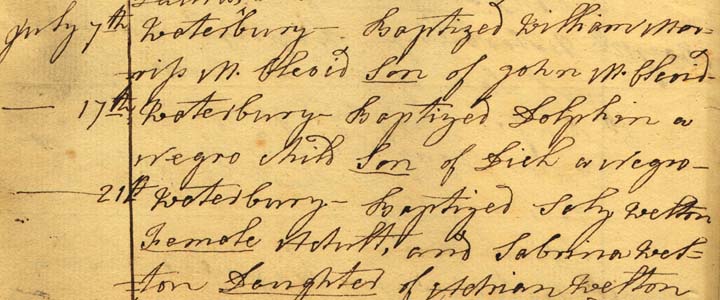 July 7th Waterbury - Baptized William Mor-
riss M.cleod Son of John M.cleod
— 17th Waterbury - Baptized Dolphin a
Negro child Son of Dick a Negro-
— 21st Waterbury - Baptized Saly Welton
Female Adult, and Sabrina Wel-
ton Daughter of Adrian Welton